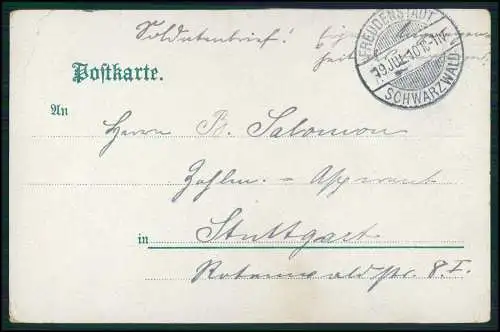 Soldatenbrief!
FREUDENSTADT
19 JUL 10
SCHWARZWALD
Postkarte.
An
Herrn B. Salomon
Zahlm. - Aspirant
in Stuttgart
Rotenwaldstr. 8. I.